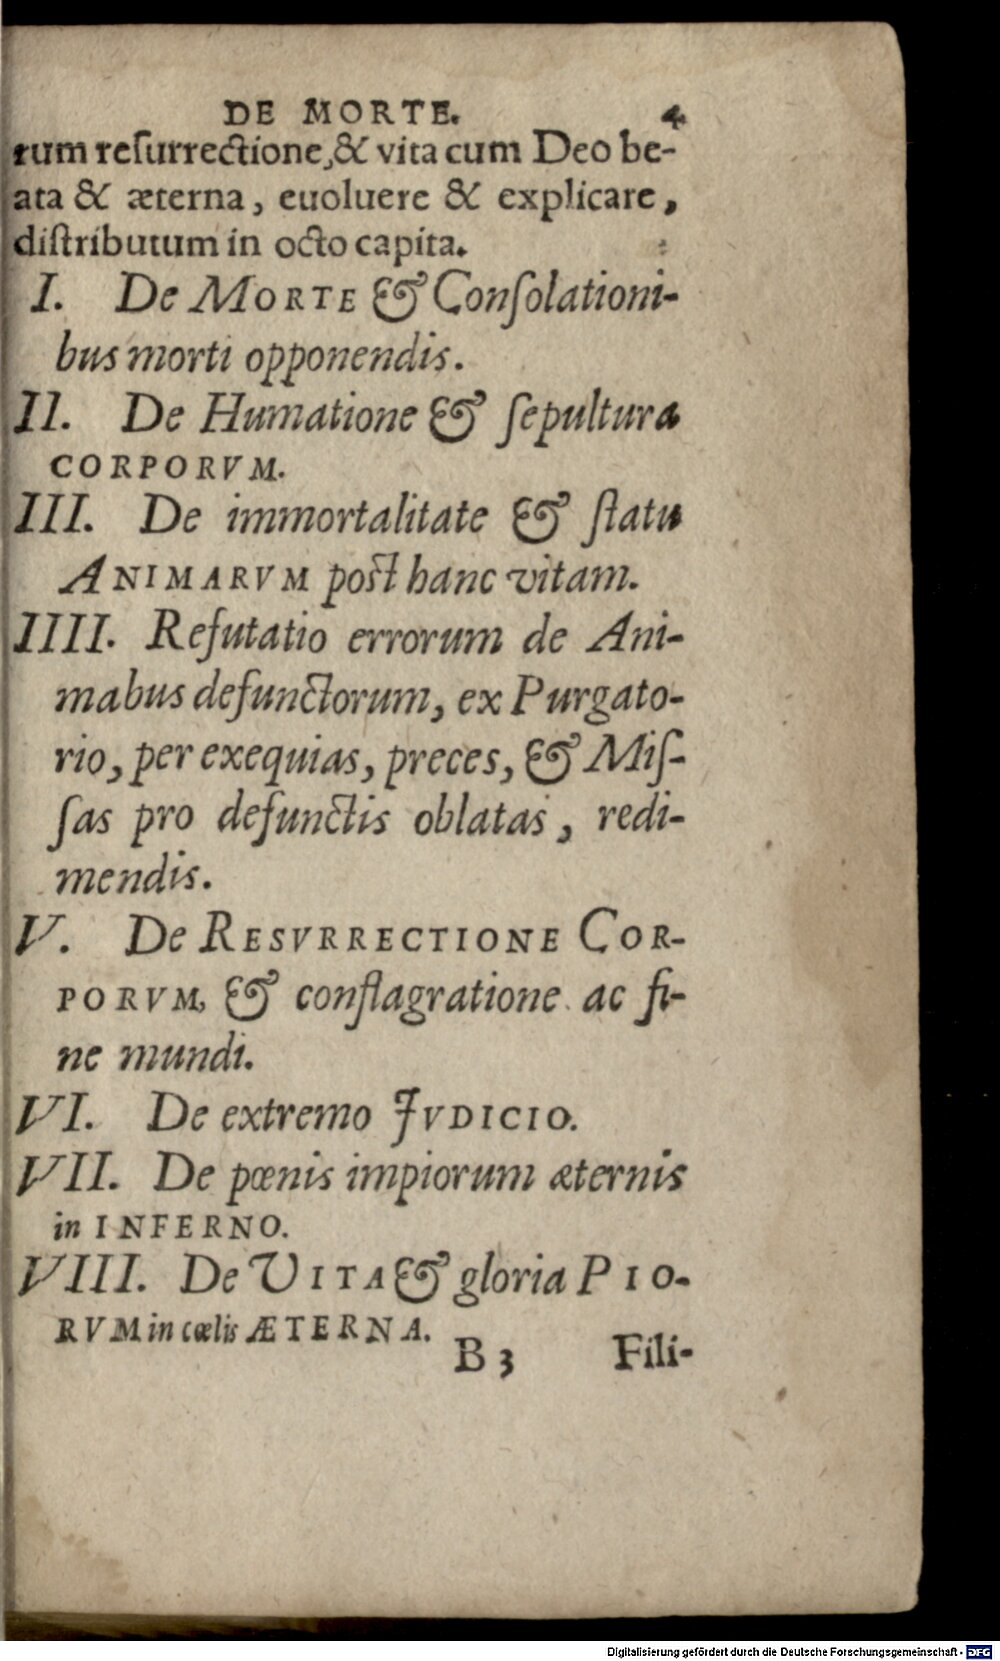 DE MORTE. 4
rum resurrectione, & vita cum Deo be-
ata & æterna, euoluere & explicare,
distributum in octo capita.
I. De MORTE & Consolationi-
bus morti opponendis.
II. De Humatione & sepultura
CORPORVM.
III. De immortalitate & statu
ANIMARVM post hanc vitam.
IIII. Refutatio errorum de Ani-
mabus defunctorum, ex Purgato-
rio, per exequias, preces, & Mis-
sas pro defunctis oblatas, redi-
mendis.
V. De RESVRRECTIONE COR-
PORVM, & conflagratione ac fi-
ne mundi.
VI. De extremo JVDICIO.
VII. De pœnis impiorum æternis
in INFERNO.
VIII. De VITA & gloria PIO-
RVM in cœlis ÆTERNA.
B 3 Fili-
Digitalisierung gefördert durch die Deutsche Forschungsgemeinschaft - DFG